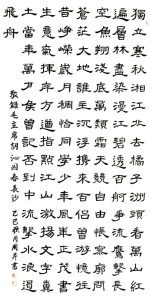 獨立寒秋湘江北去橘子洲頭看萬山紅
遍層林盡染漫江碧透百舸爭流鷹擊長
空魚翔淺底萬類霜天競自由悵寥廓問
蒼茫大地誰主沉浮攜來百侶曾遊憶往
昔崢嶸歲月稠恰同學少年風華正茂書
生意氣揮斥方遒指點江山激揚文字糞
土當年萬戶侯曾記否到中流擊水浪遏
飛舟
敬錄毛主席詞沁园春長沙
乙巳秋月